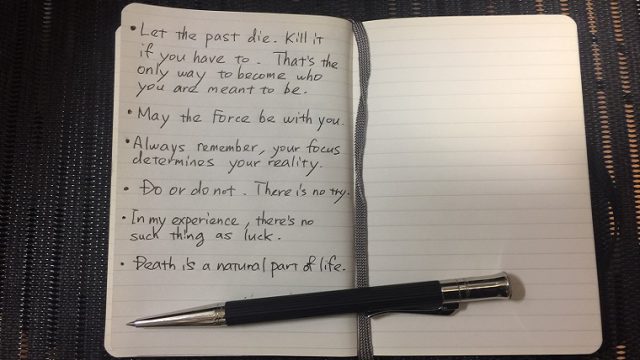 • Let the past die. Kill it
if you have to. That's the
only way to become who
you are meant to be.
• May the Force be with you.
• Always remember, your focus
determines your reality.
• Do or do not. There is no try.
• In my experience, there's no
such thing as luck.
• Death is a natural part of life.